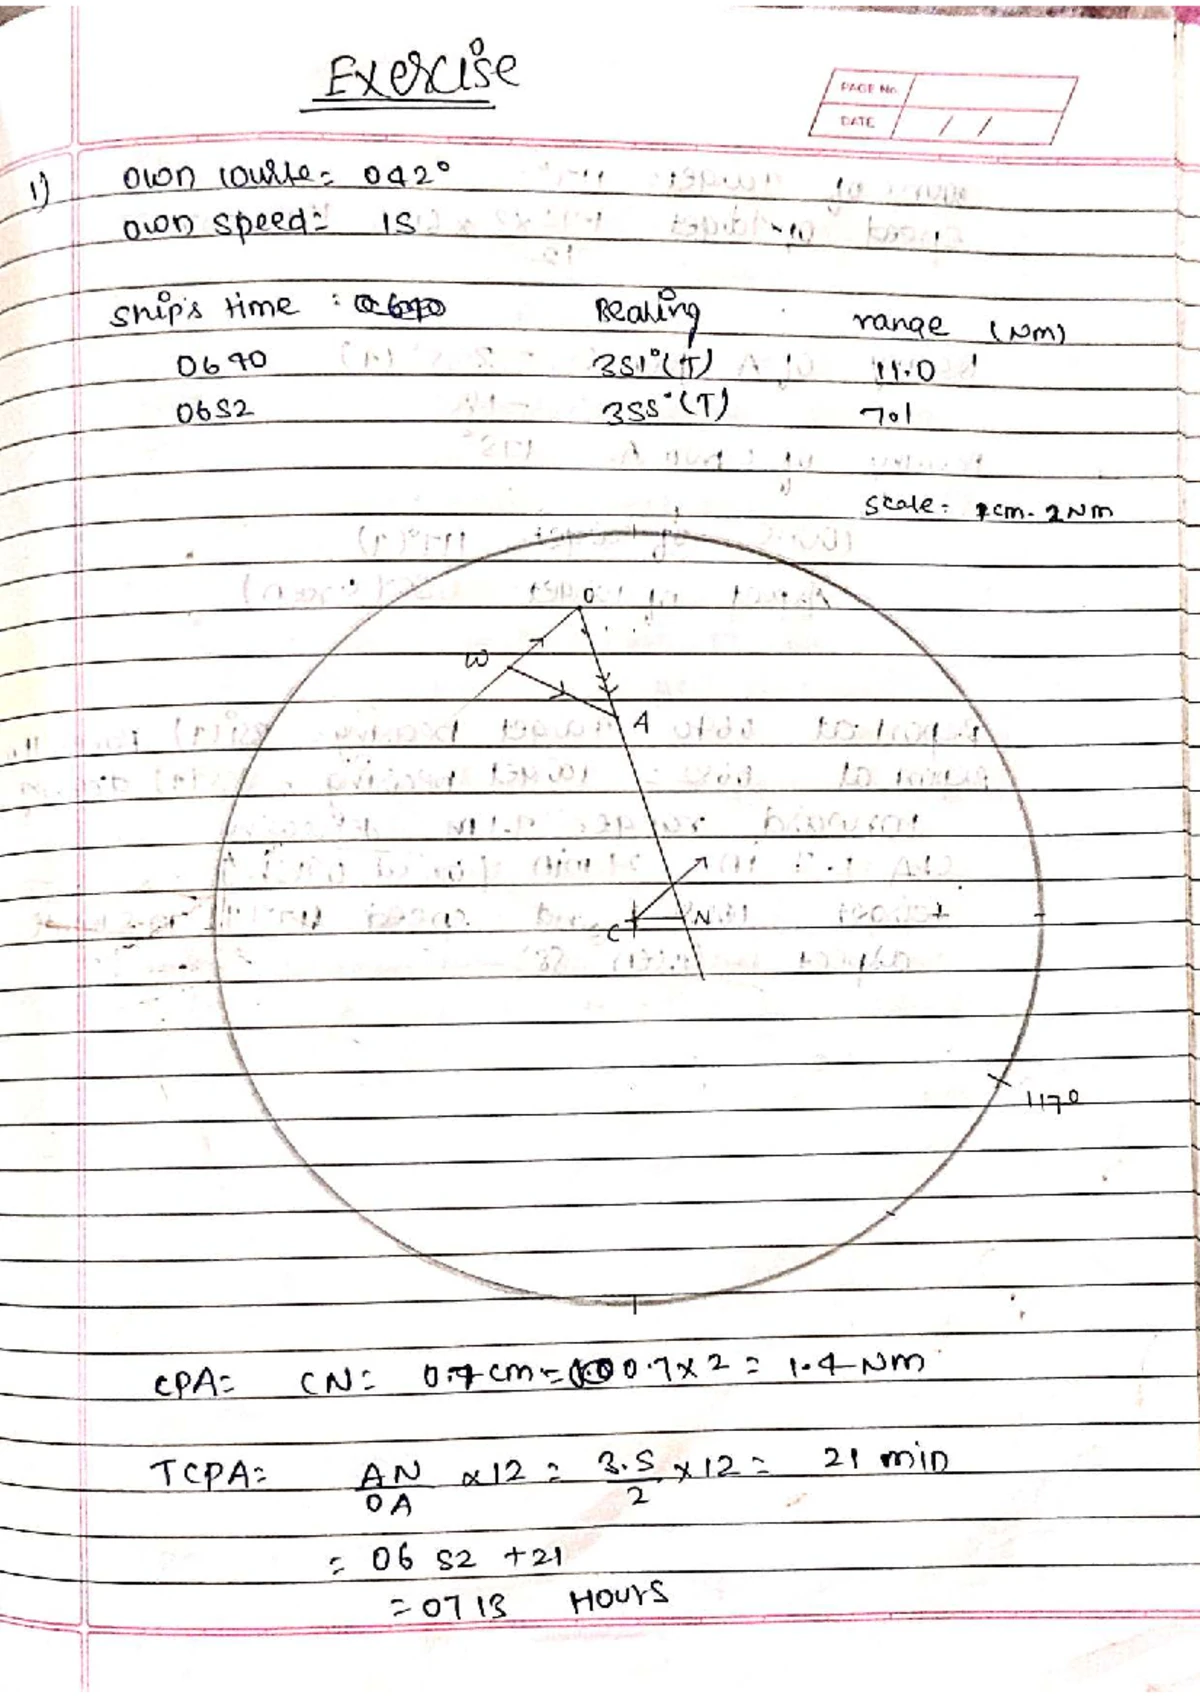 Exercise
PAGE No.
DATE / /
1) own course = 042°
own speed = 15
ship's time : Bearing range (Nm)
0640 351°(T) 11.0
0652 355°(T) 7.1
scale = 1cm - 2Nm
O
W
A
C N
117°
CPA = CN = 0.7cm = 0.7 x 2 = 1.4 Nm
TCPA = AN/OA x 12 = 3.5/2 x 12 = 21 min
= 06 52 + 21
= 0713 Hours